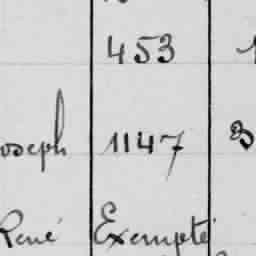 453
oseph 1147
René Exempté